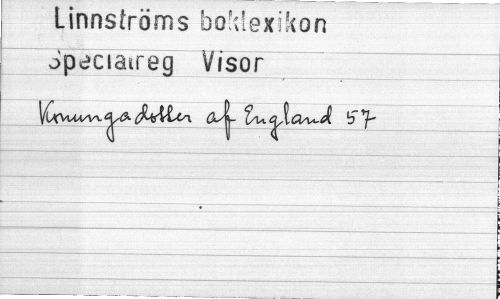 Linnströms boklexikon
Specialreg Visor
Konungadotter af England 57